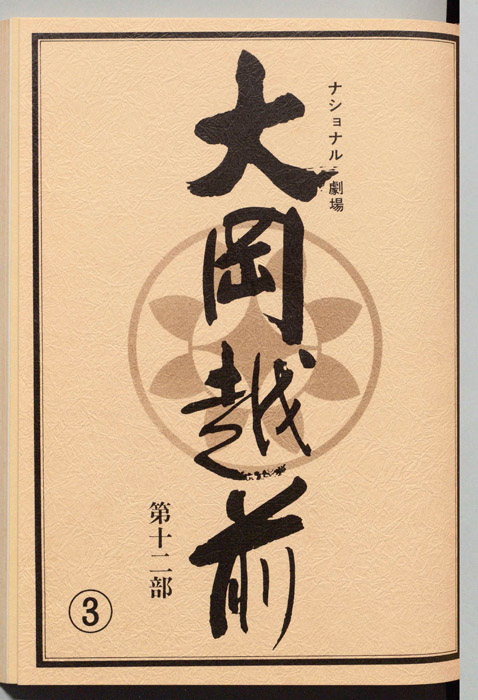 ナショナル劇場
大岡越前
第十二部
③